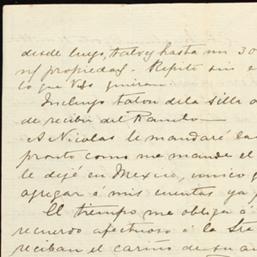 desde luego, tal vez hasta un 30
n/ propiedad. Repito sin e
lo que Vds quieran.
Incluyo talon de la silla
de recibi del Ramon
A Nicolas le mandaré la
pronto como me mande el
le dejé en Mexico, unico
agregar á mis cuentas ya
El tiempo me obliga á
recuerdo afectuoso á la Sra
reciban el cariño de su